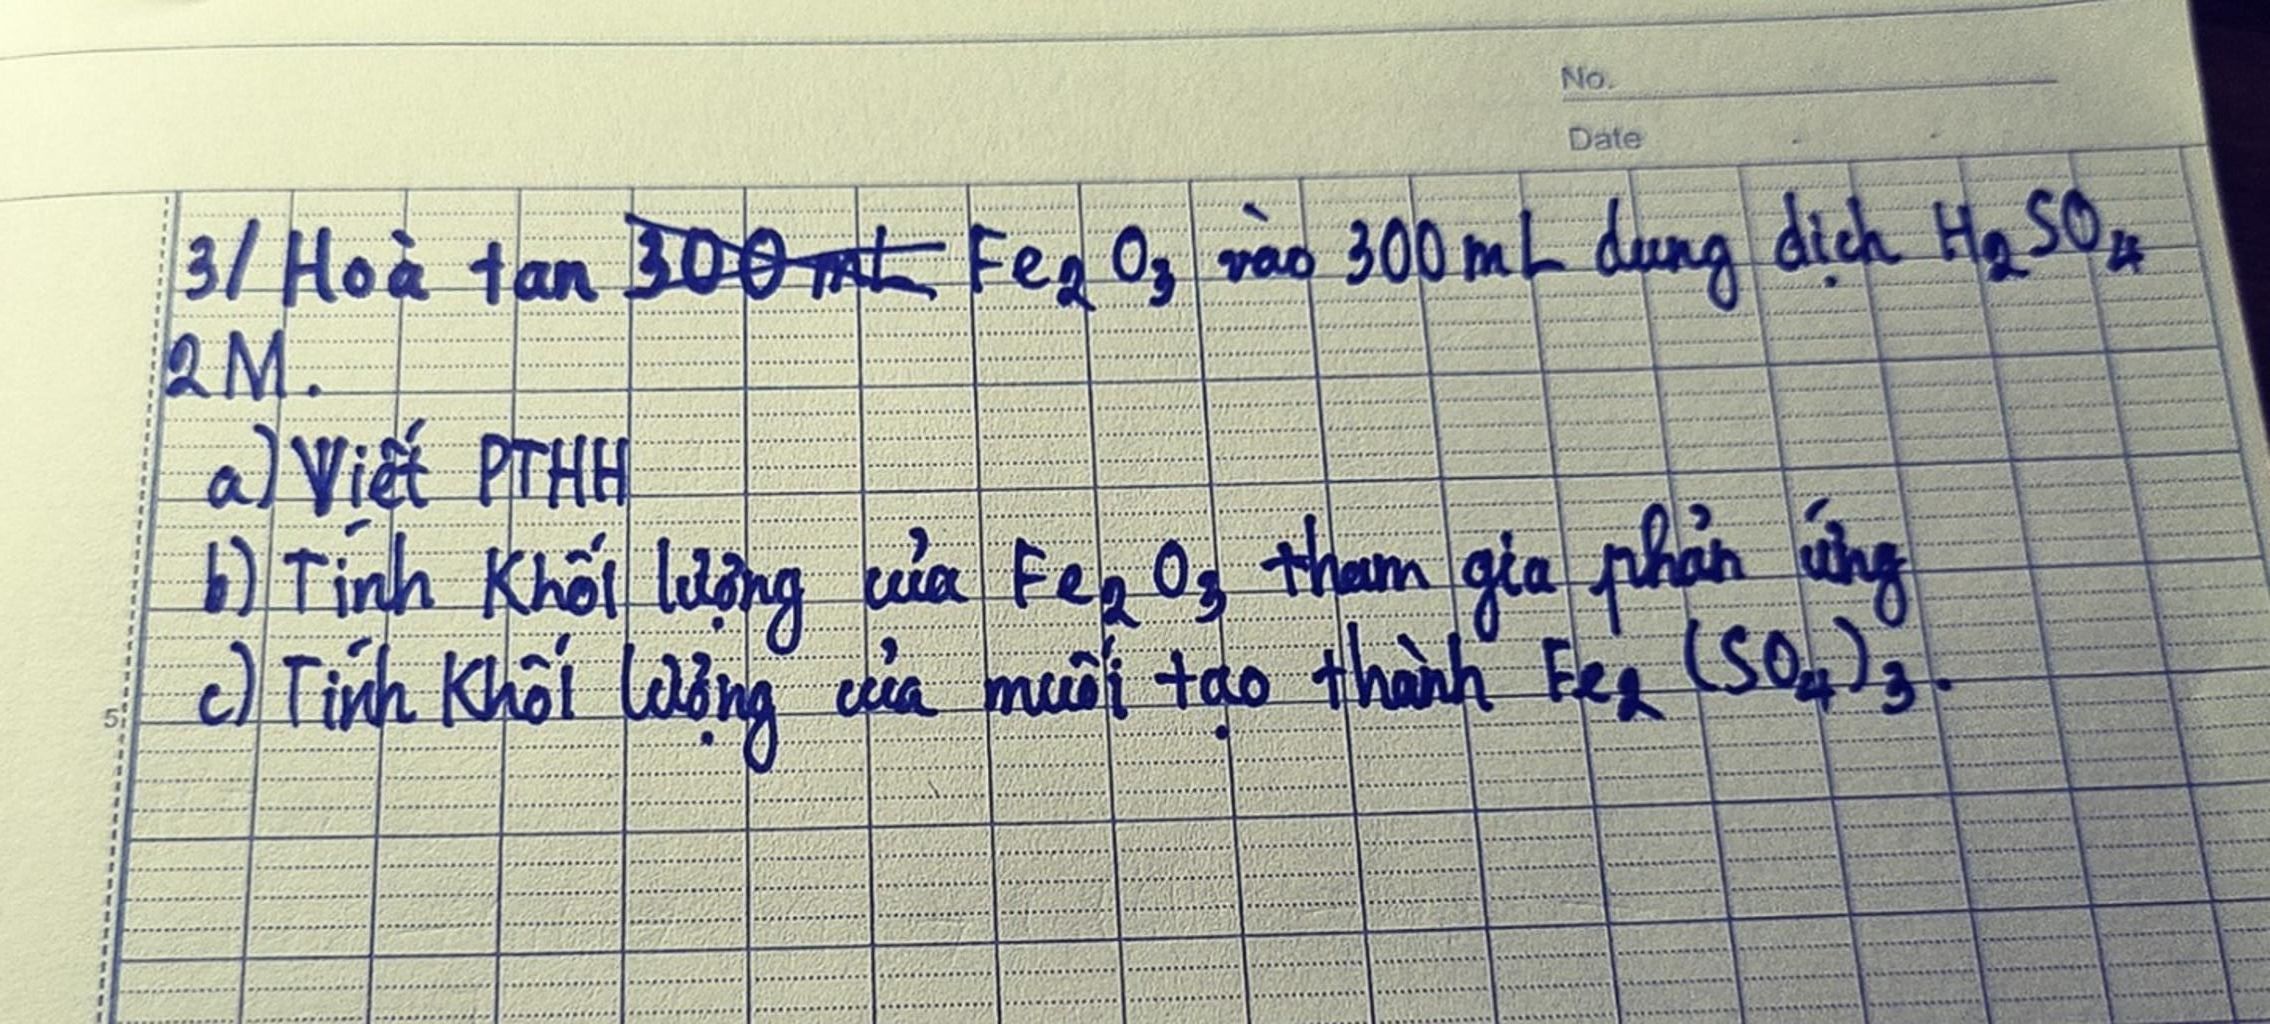 No.
Date
3/ Hoà tan 300mL Fe₂O₃ vào 300mL dung dịch H₂SO₄
2M.
a) Viết PTHH
b) Tính khối lượng của Fe₂O₃ tham gia phản ứng
c) Tính khối lượng của muối tạo thành Fe₂(SO₄)₃.
5